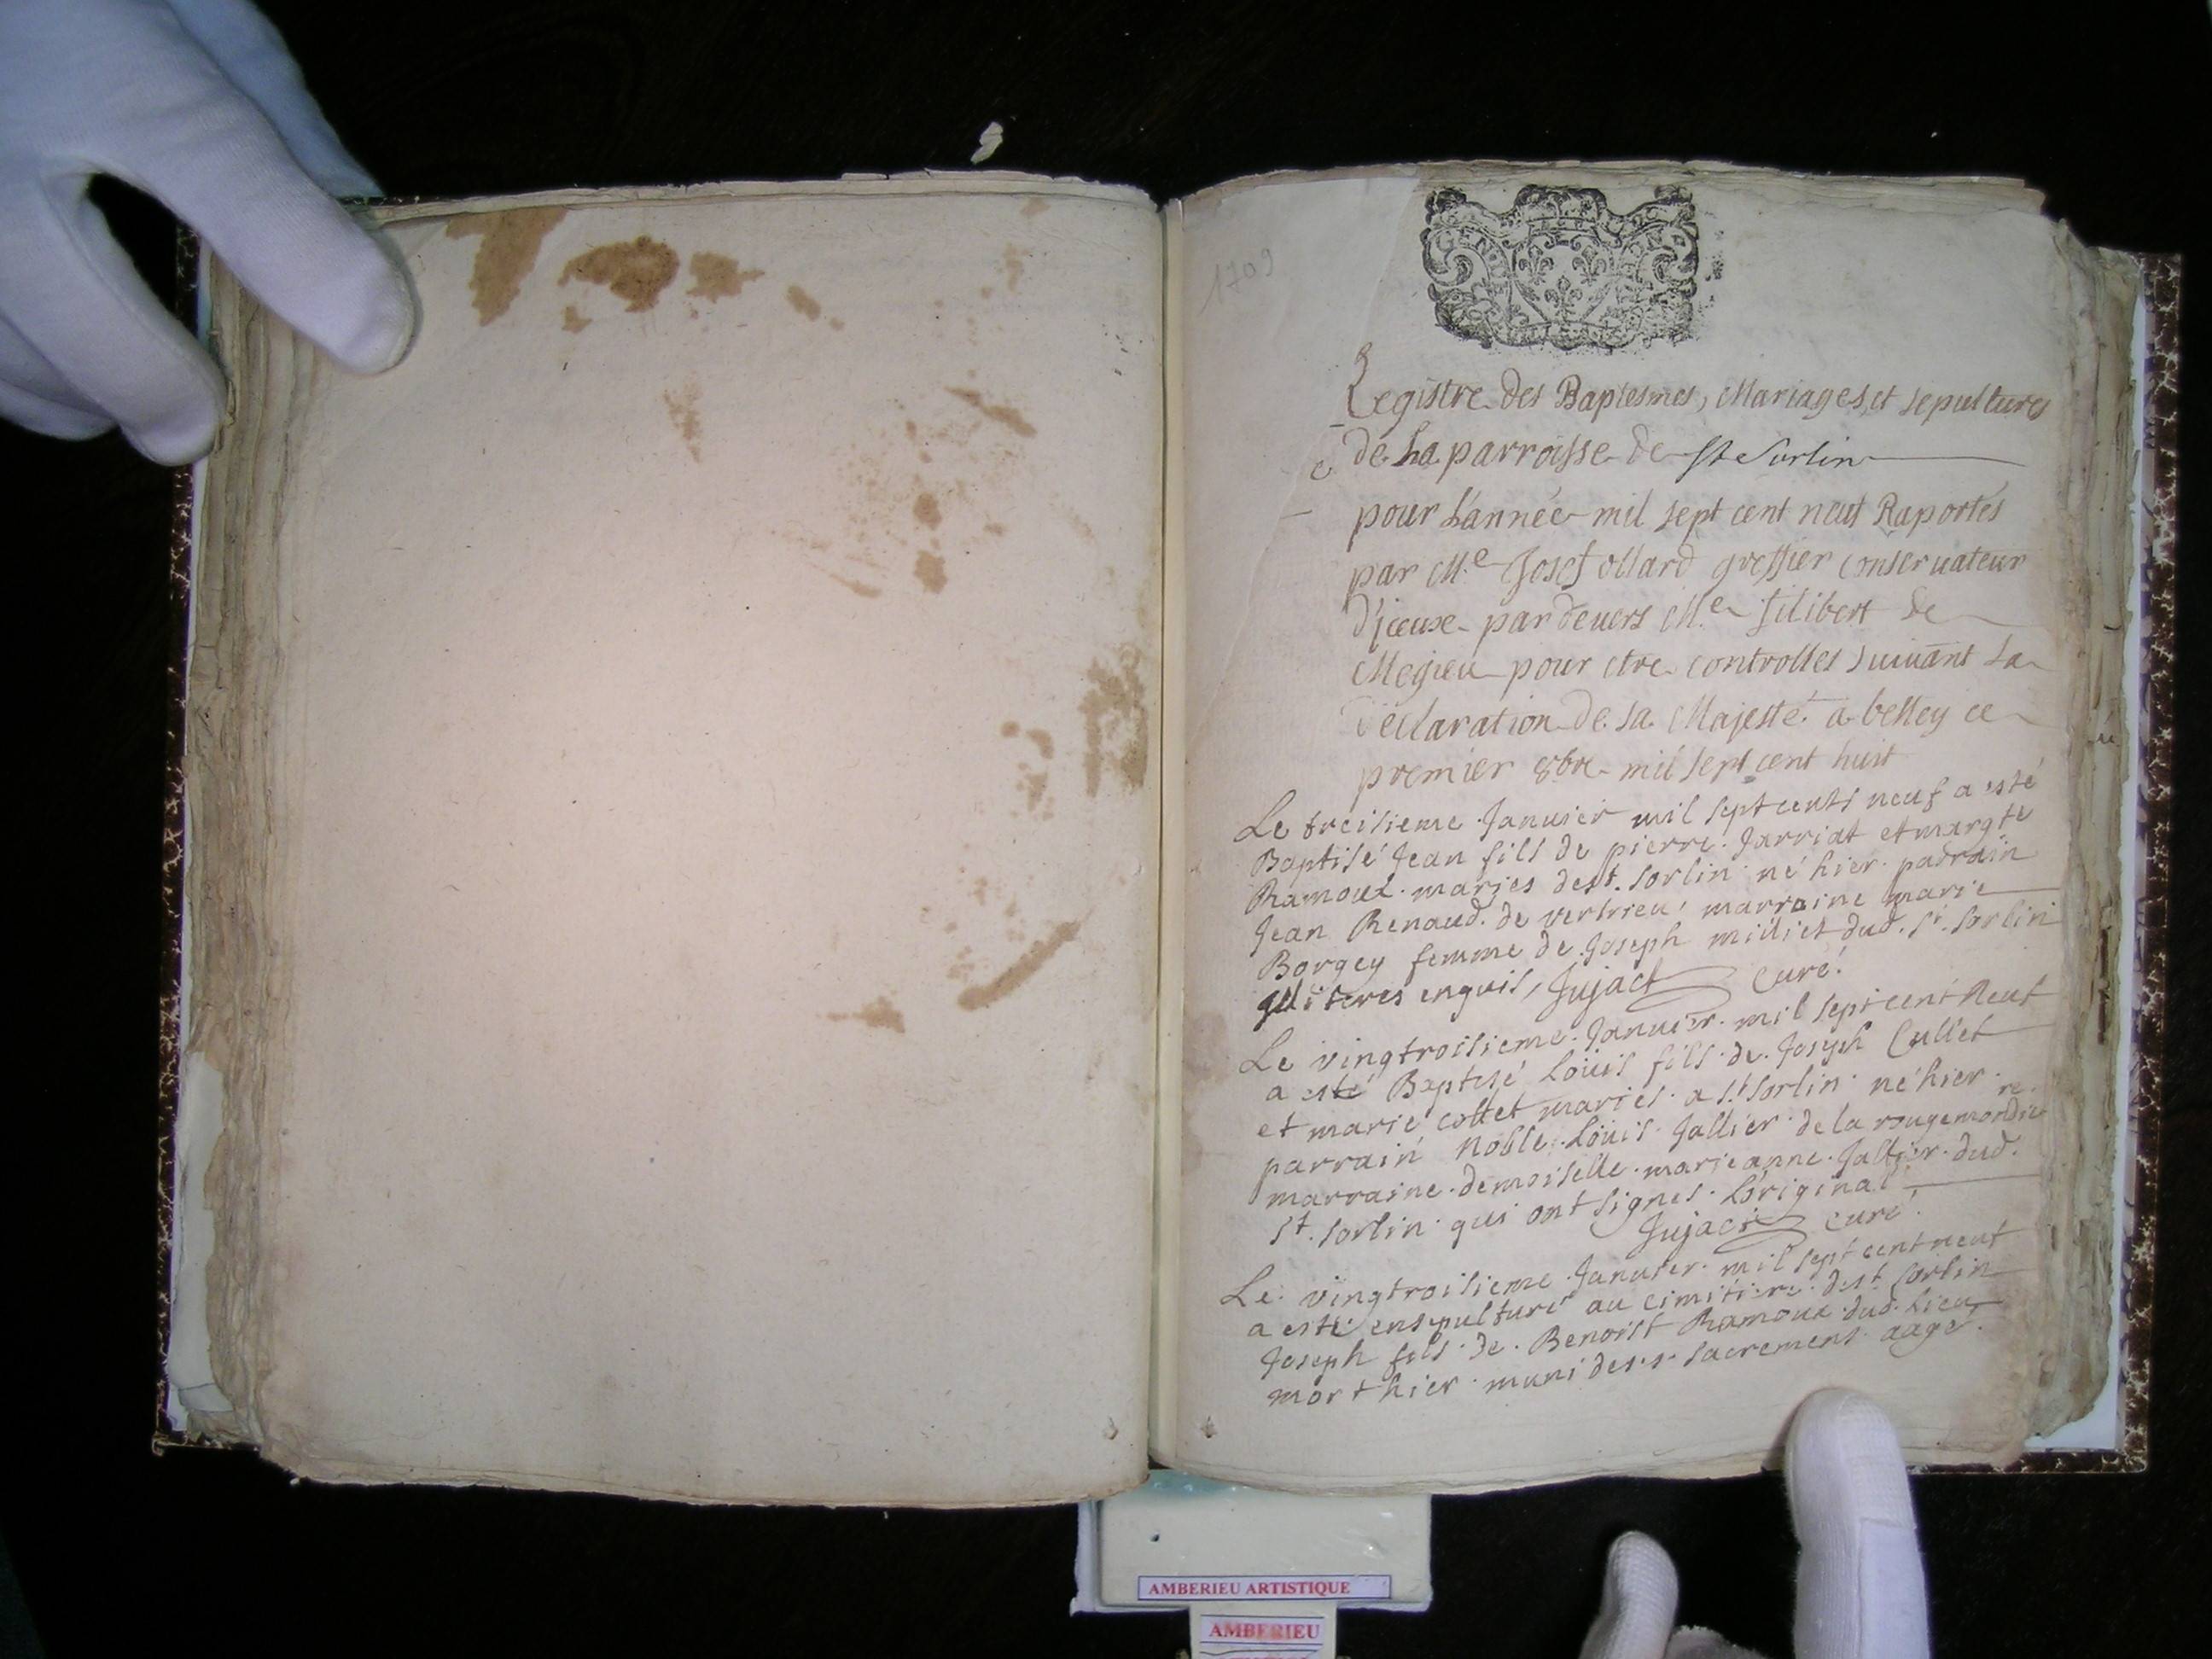 1709
GEN
Registre des Baptesmes, Mariages, et sepultures
de La parroisse de St Sorlin
pour L'année mil sept cent neuf Raportés
par Me Josef ollard greffier conservateur
d'jceux pardevers Me filibert de
Megieu pour etre controlles suivant La
declaration de sa Majesté a belley ce
premier 8bre mil sept cent huit
Le treisieme Januier mil sept cents neuf a esté
Baptisé Jean fils de pierre Jarriat et margte
Ramoux maries de st. sorlin né hier parrain
Jean Renaud de vertrieu marraine marie
Borgey femme de Joseph milliet dud. st. sorlin
jlliteres enquis, Jujact curé.
Le vingtroisieme Januier mil sept cent neuf
a esté Baptisé Loüis fils de Joseph Cullet
et marie collet maries a st sorlin né hier
parrain Noble Loüis Jallier de la rouge
marraine demoiselle marieanne Jallier dud.
st. sorlin qui ont signes L'original
Jujact curé.
Le vingtroisieme Januier mil sept cent neuf
a esté ensepulturé au cimitiere de st sorlin
Joseph fils de Benoist Ramoux dud. Lieu
mort hier muni des s. sacrements aagé
AMBERIEU ARTISTIQUE
AMBERIEU